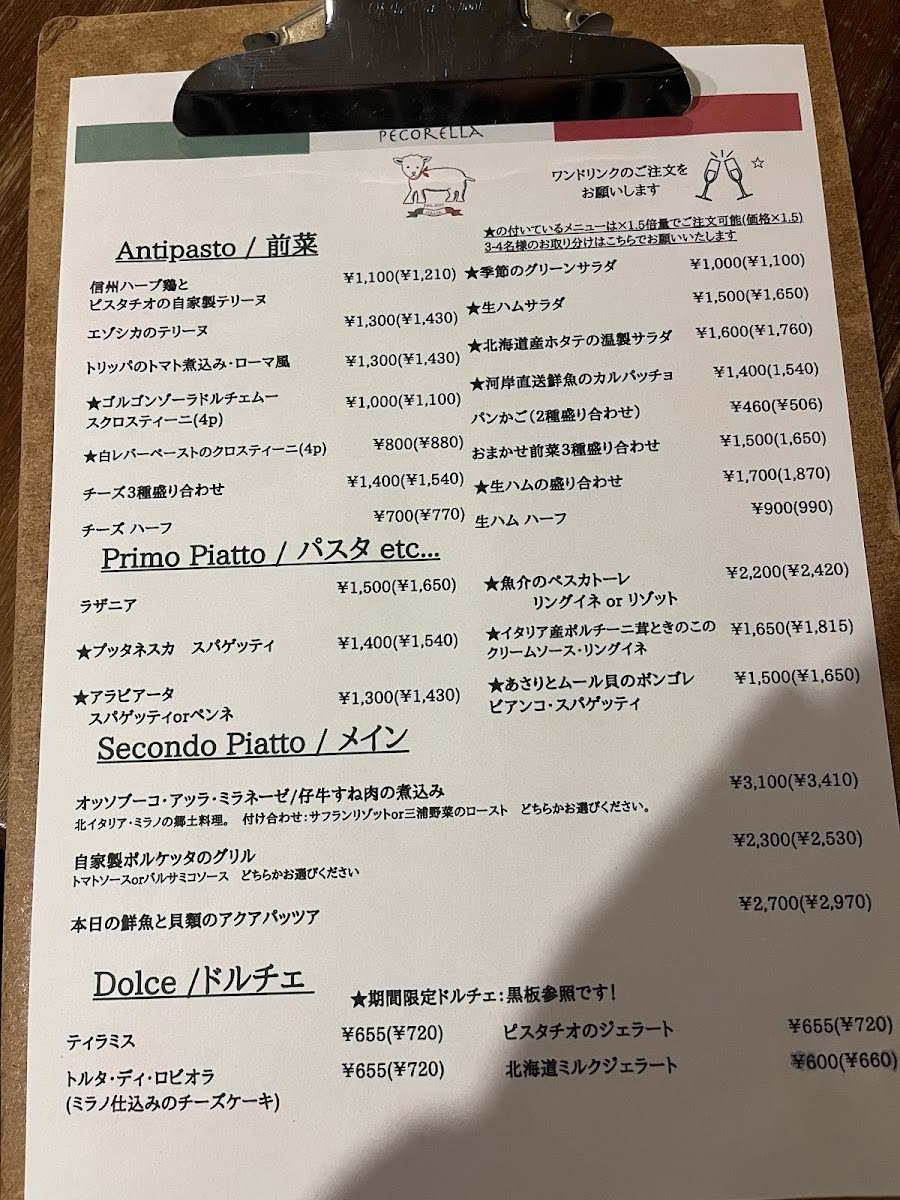 PECORELLA
ITALIA
ワンドリンクのご注文を
お願いします
☆
★の付いているメニューは×1.5倍量でご注文可能(価格×1.5)
3-4名様のお取り分けはこちらでお願いいたします
Antipasto / 前菜
信州ハーブ鶏と
ピスタチオの自家製テリーヌ ¥1,100(¥1,210)
エゾシカのテリーヌ ¥1,300(¥1,430)
トリッパのトマト煮込み・ローマ風 ¥1,300(¥1,430)
★ゴルゴンゾーラドルチェムー
スクロスティーニ(4p) ¥1,000(¥1,100)
★白レバーペーストのクロスティーニ(4p) ¥800(¥880)
チーズ3種盛り合わせ ¥1,400(¥1,540)
チーズ ハーフ ¥700(¥770)
★季節のグリーンサラダ ¥1,000(¥1,100)
★生ハムサラダ ¥1,500(¥1,650)
★北海道産ホタテの温製サラダ ¥1,600(¥1,760)
★河岸直送鮮魚のカルパッチョ ¥1,400(1,540)
パンかご(2種盛り合わせ) ¥460(¥506)
おまかせ前菜3種盛り合わせ ¥1,500(1,650)
★生ハムの盛り合わせ ¥1,700(1,870)
生ハム ハーフ ¥900(990)
Primo Piatto / パスタ etc...
ラザニア ¥1,500(¥1,650)
★プッタネスカ スパゲッティ ¥1,400(¥1,540)
★アラビアータ
スパゲッティorペンネ ¥1,300(¥1,430)
★魚介のペスカトーレ
リングイネ or リゾット ¥2,200(¥2,420)
★イタリア産ポルチーニ茸ときのこの
クリームソース・リングイネ ¥1,650(¥1,815)
★あさりとムール貝のボンゴレ
ビアンコ・スパゲッティ ¥1,500(¥1,650)
Secondo Piatto / メイン
オッソブーコ・アッラ・ミラネーゼ/仔牛すね肉の煮込み ¥3,100(¥3,410)
北イタリア・ミラノの郷土料理。 付け合わせ:サフランリゾットor三浦野菜のロースト どちらかお選びください。
自家製ポルケッタのグリル ¥2,300(¥2,530)
トマトソースorバルサミコソース どちらかお選びください
本日の鮮魚と貝類のアクアパッツア ¥2,700(¥2,970)
Dolce /ドルチェ
★期間限定ドルチェ:黒板参照です!
ティラミス ¥655(¥720)
トルタ・ディ・ロビオラ ¥655(¥720)
(ミラノ仕込みのチーズケーキ)
ピスタチオのジェラート ¥655(¥720)
北海道ミルクジェラート ¥600(¥660)